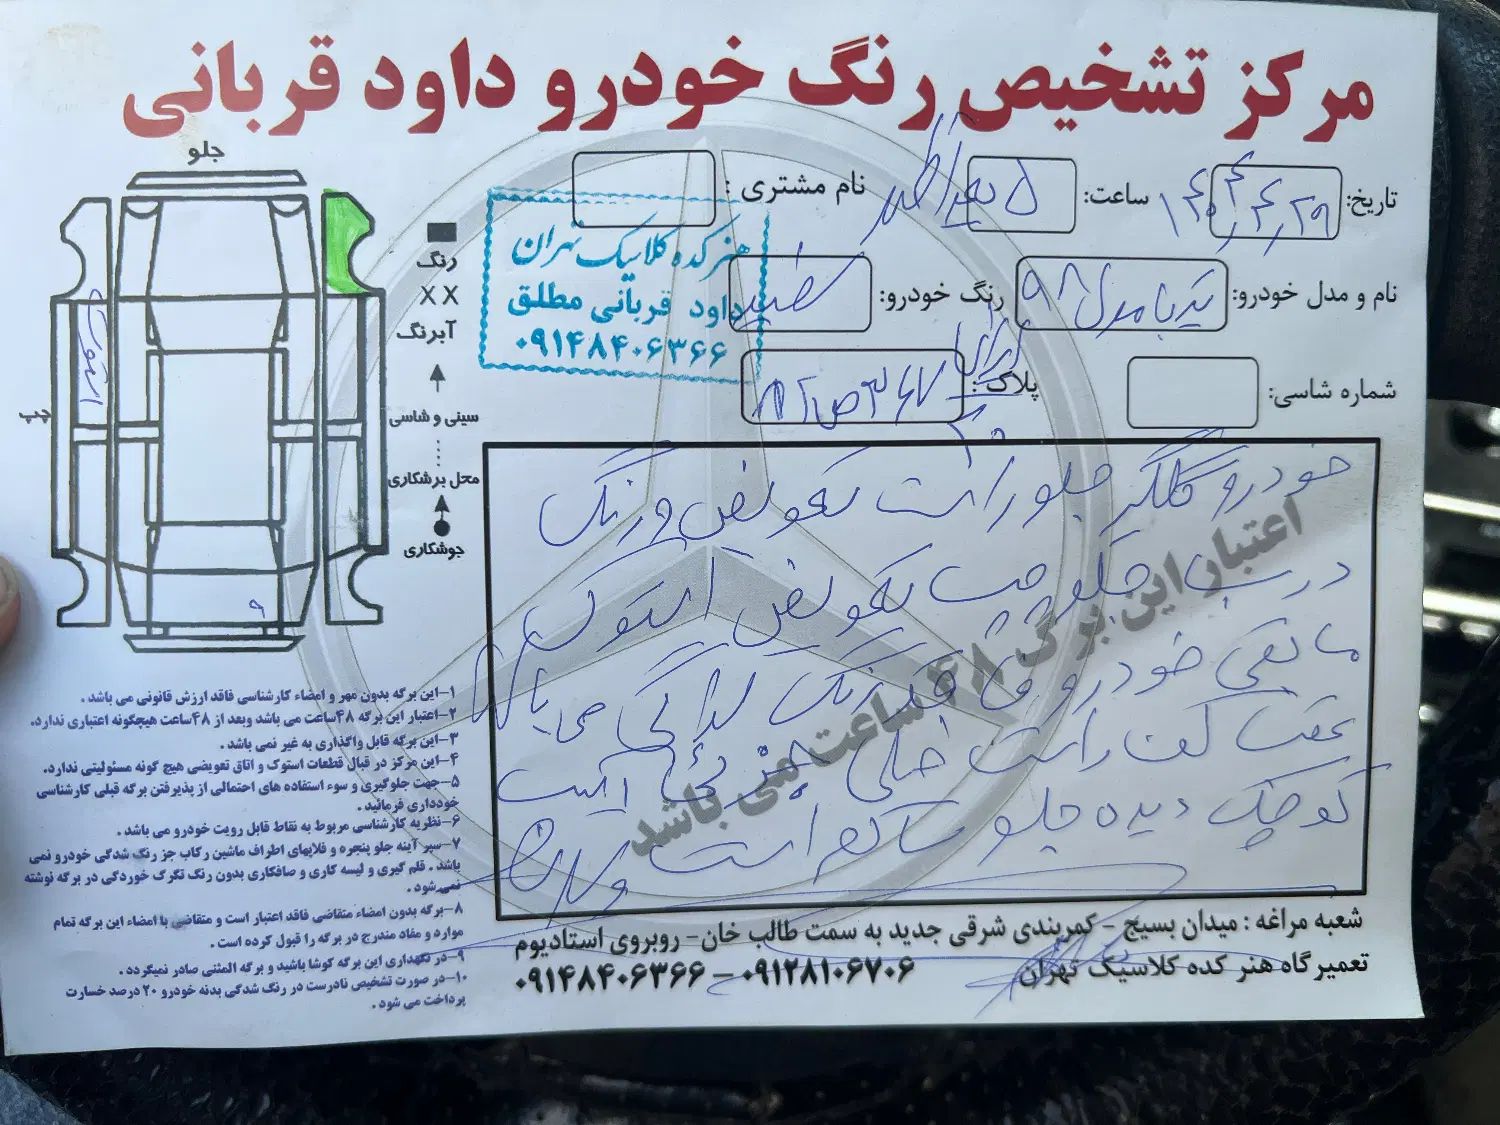 مرکز تشخیص رنگ خودرو داود قربانی
تاریخ: ۱۴۰۴,۴,۲۹
ساعت: ۵ بعدازظهر
نام مشتری:
نام و مدل خودرو: تیبا مدل ۹۸
رنگ خودرو: سفید
شماره شاسی:
پلاک: ایران
هنرکده کلاسیک تهران
داود قربانی مطلق
۰۹۱۴۸۴۰۶۳۶۶
جلو
چپ
استوک
رنگ
X X
آبرنگ
سینی و شاسی
محل برشکاری
جوشکاری
خودرو گلگیر جلو راست تعویض و رنگ
درب جلو چپ تعویض استوک
مابقی خودرو فاقد رنگ شدگی می باشد
عقب کف راست خیلی جزئی آسیب
کوچک دیده جلو سالم است
اعتبار این برگ ۴۸ ساعت می باشد
۱-این برگه بدون مهر و امضاء کارشناسی فاقد ارزش قانونی می باشد .
۲-اعتبار این برگه ۴۸ساعت می باشد وبعد از ۴۸ساعت هیچگونه اعتباری ندارد.
۳-این برگه قابل واگذاری به غیر نمی باشد .
۴-این مرکز در قبال قطعات استوک و اتاق تعویضی هیچ گونه مسئولیتی ندارد.
۵-جهت جلوگیری و سوء استفاده های احتمالی از پذیرفتن برگه قبلی کارشناسی
خودداری فرمائید .
۶-نظریه کارشناسی مربوط به نقاط قابل رویت خودرو می باشد .
۷-سپر آینه جلو پنجره و قلابهای اطراف ماشین رکاب جز رنگ شدگی خودرو نمی
باشد . قلم گیری و لیسه کاری و صافکاری بدون رنگ تگرگ خوردگی در برگه نوشته
نمی شود .
۸-برگه بدون امضاء متقاضی فاقد اعتبار است و متقاضی با امضاء این برگه تمام
موارد و مفاد مندرج در برگه را قبول کرده است .
۹-در نگهداری این برگه کوشا باشید و برگه المثنی صادر نمیگردد .
۱۰-در صورت تشخیص نادرست در رنگ شدگی بدنه خودرو ۲۰ درصد خسارت
پرداخت می شود .
شعبه مراغه : میدان بسیج - کمربندی شرقی جدید به سمت طالب خان- روبروی استادیوم
تعمیرگاه هنر کده کلاسیک تهران ۰۹۱۲۸۱۰۶۷۰۶ - ۰۹۱۴۸۴۰۶۳۶۶